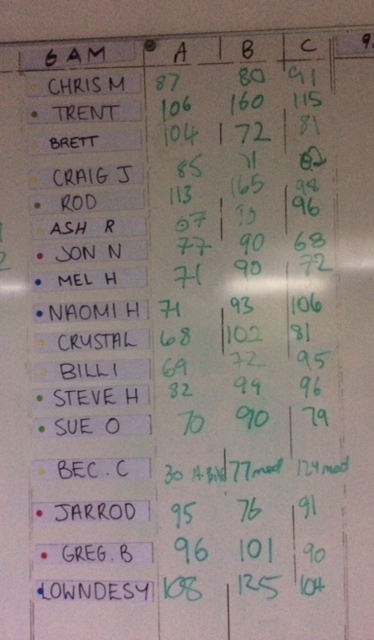 6 AM A B C 9
CHRIS M 87 80 91
TRENT 106 160 115
BRETT 104 72 81
CRAIG J 85 71
ROD 113 165 98
ASH R 96
JON N 77 90 68
MEL H 71 90 72
NAOMI H 71 93 106
CRYSTAL 68 102 81
BILLI 69 72 95
STEVE H 82 99 96
SUE O 70 90 79
BEC. C 30 77 mod 124 mod
JARROD 95 76 91
GREG. B 96 101 90
LOWNDESY 108 125 104